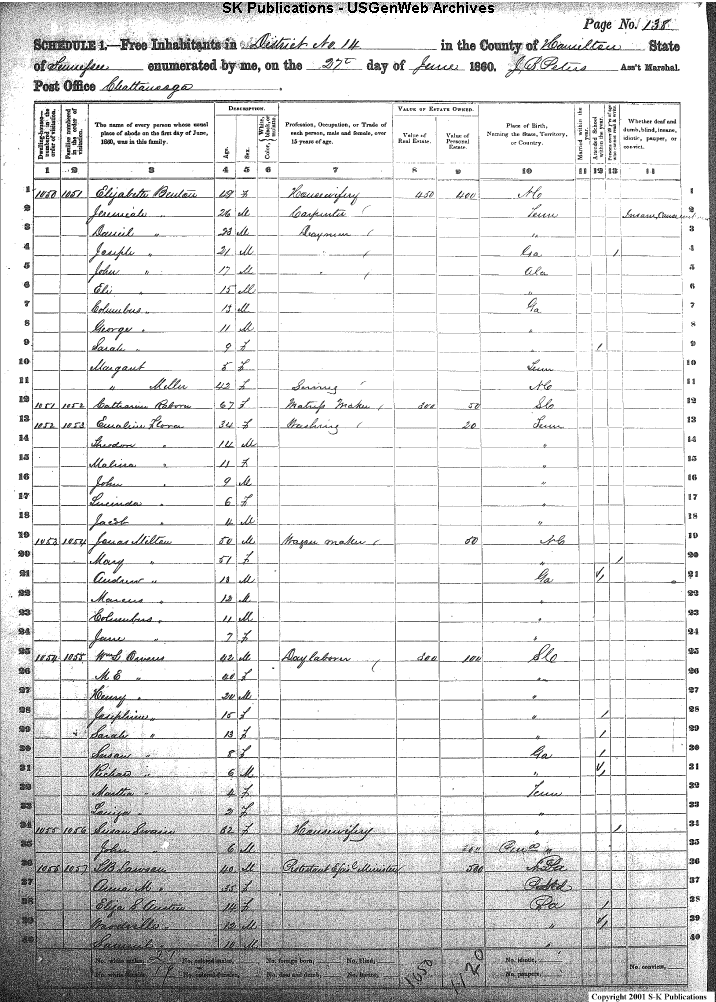 SK Publications - USGenWeb Archives
Page No. 138
SCHEDULE 1.—Free Inhabitants in District No. 14 in the County of Hamilton State
of Tennessee enumerated by me, on the 27th day of June 1860. J. B. Peters Ass't Marshal.
Post Office Chattanooga
Dwelling-houses numbered in the order of visitation. Families numbered in the order of visitation. The name of every person whose usual place of abode on the first day of June, 1860, was in this family. DESCRIPTION. Age. Sex. Color, White, black, or mulatto. Profession, Occupation, or Trade of each person, male and female, over 15 years of age. VALUE OF ESTATE OWNED. Value of Real Estate. Value of Personal Estate. Place of Birth, Naming the State, Territory, or Country. Married within the year. Attended School within the year. Whether deaf and dumb, blind, insane, idiotic, pauper, or convict.
1 2 3 4 5 6 7 8 9 10 11 12 13 14
1 1050 1051 Elizabeth Benton F Housewifery 450 400 NC 1
2 Jeremiah " 26 M Carpenter Tenn Insane 2
3 Daniel " 23 M " 3
4 Joseph " 21 M " Ga / 4
5 John " 17 M " Ala 5
6 Eli " 15 M " 6
7 Columbus " 13 M Ga 7
8 George " 11 M " 8
9 Sarah " 9 F " / 9
10 Margaret 5 F Tenn 10
11 " Miller 42 F NC 11
12 1051 1052 Catharine 67 F Matress Maker 300 50 12
13 1052 1053 Emaline 34 F Washing 20 Tenn 13
14 Theodore " 14 M " 14
15 Malissa " 11 F " 15
16 John " 9 M " 16
17 Lucinda " 6 F " 17
18 Jacob " 4 M " 18
19 1053 1054 Jonas Milton 50 M Wagon maker 50 NC 19
20 Mary " 51 F " / 20
21 Andrew " 13 M Ga 21
22 Marcus " 12 M " 22
23 Columbus " 11 M " 23
24 Jane " 7 F " 24
25 1054 1055 Wm S Owens 42 M Day laborer 300 100 25
26 M E " 40 F " 26
27 Henry " 20 M " 27
28 Josephine " 15 F " / 28
29 Sarah " 13 F " / 29
30 Susan " 8 F Ga / 30
31 Richard " 6 M " 31
32 Martha " 4 F Tenn 32
33 2 F " 33
34 1055 1056 Susan Swain 32 F Housewifery " / 34
35 John " 6 M " 35
36 1056 1057 Lawson 40 M Protestant Epis'l Minister 500 Pa 36
37 Anna M " 35 F 37
38 Eliza S Austin 14 F Pa / 38
39 12 M " 39
40 10 M " 40
No. white males, 21 No. colored males, No. foreign born, No. blind, No. idiotic, No. convicts,
No. white females, No. colored females, No. deaf and dumb, No. insane, 1650 1120 No. paupers,
Copyright 2001 S-K Publications